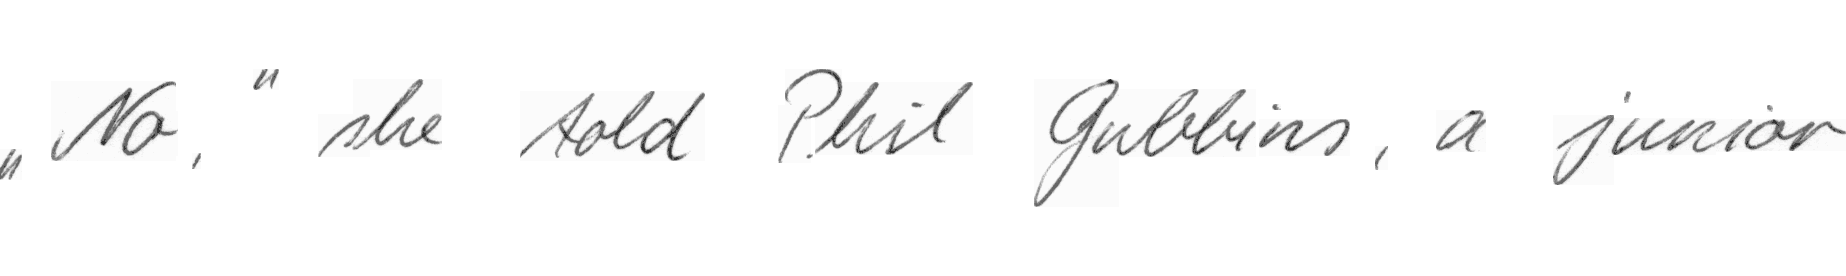 „No," she told Phil Gubbins, a junior